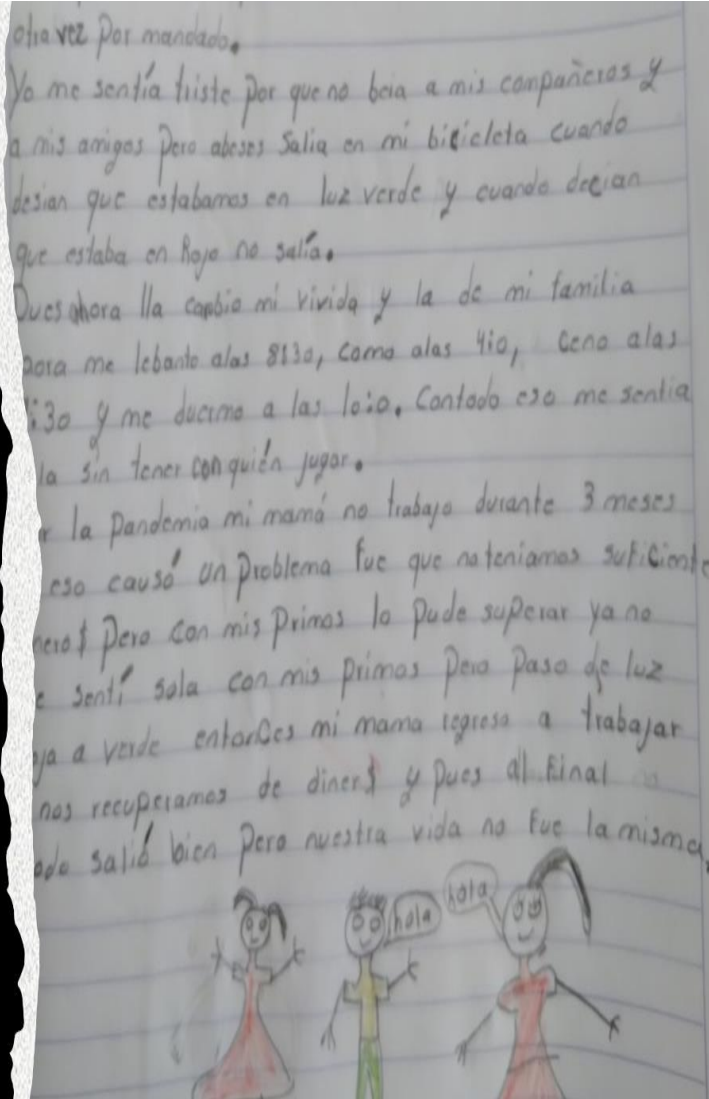 otra vez por mandado.
Yo me sentía triste por que no beia a mis compañeros y
a mis amigos Pero abeses Salia en mi bicicleta cuando
desian que estabamos en luz verde y cuando decian
que estaba en Rojo no salía.
Pues ahora lla canbio mi vivida y la de mi familia
hora me lebanto alas 8:30, como alas 4:0, ceno alas
:30 y me ducrmo a las 10:0. Contodo eso me sentia
la sin tener con quién jugar.
r la pandemia mi mamá no trabajo durante 3 meses
eso causó un problema fue que no teniamos suficiente
nero$ pero con mis primos lo pude superar ya no
e sentí sola con mis primos pero paso de luz
ja a verde entonces mi mama regreso a trabajar
nos recuperamos de diner$ y pues al final
odo salió bien pero nuestra vida no fue la misma.
hola
hola